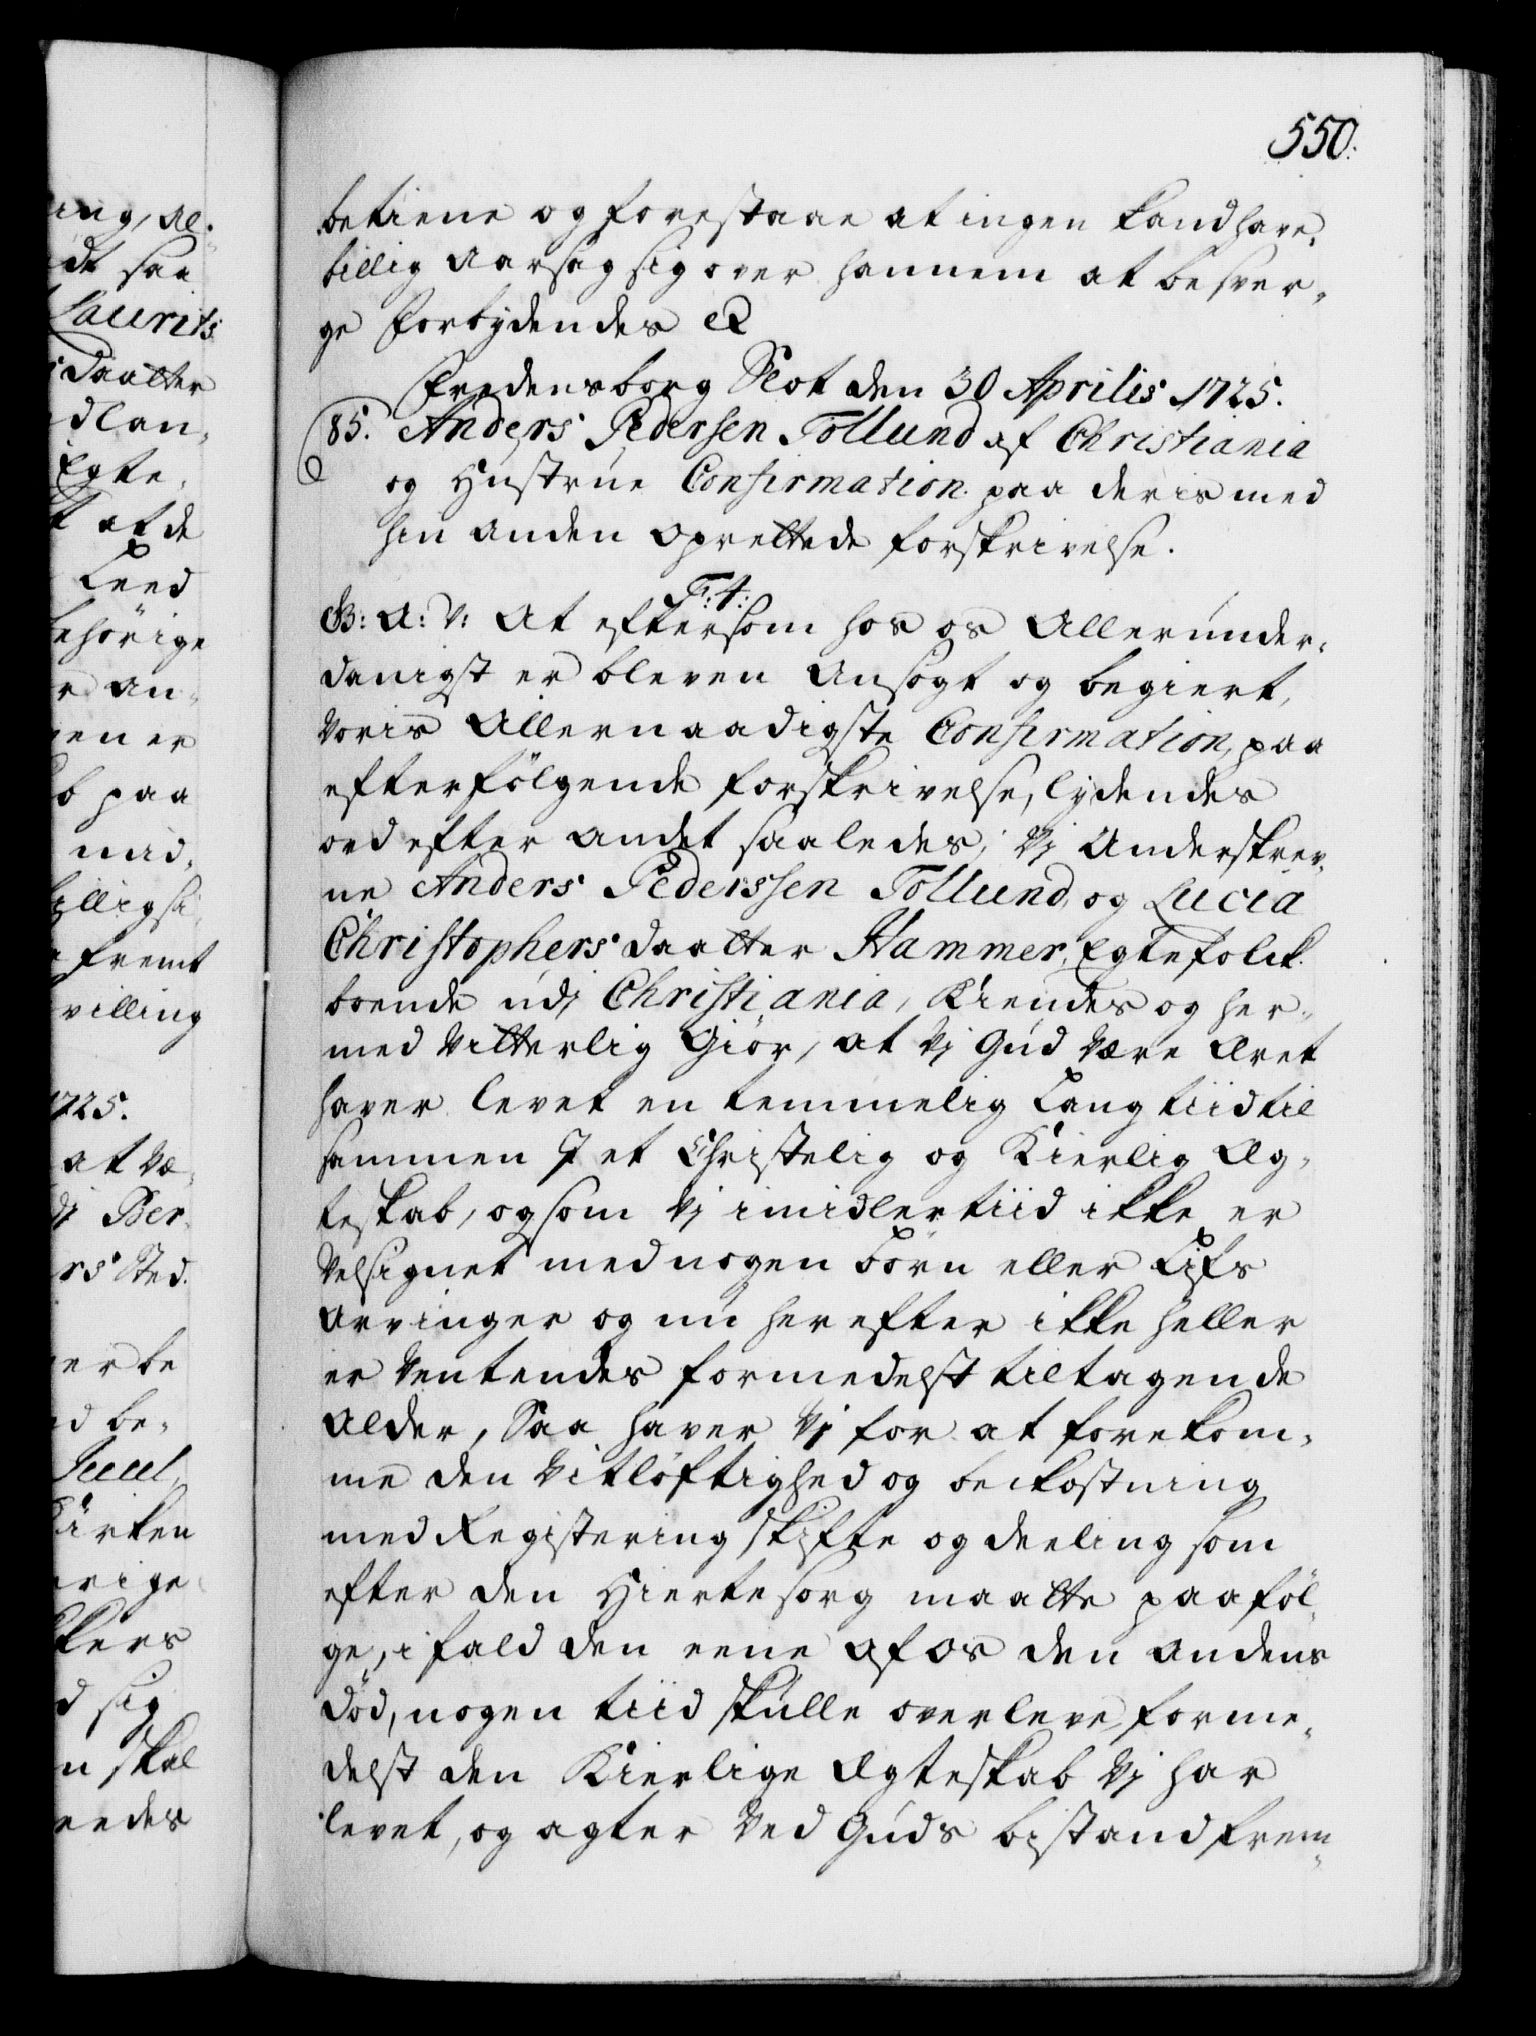 550.
betiene og forestaae at ingen kand have
billig Aarsag sig over hannem at besver-
ge Forbydendes &
Fredensborg Slot den 30 Aprilis 1725.
85. Anders Pedersen Tollund af Christiania
og Hustrue Confirmation paa deris med
hin anden oprettede forskrivelse.
F: 4:
G: A: V: At eftersom hos os Allerunder-
danigst er bleven Ansøgt og begiert,
Voris Allernaadigste Confirmation, paa
efterfölgende forskrivelse, lydendes
ord efter andet saaledes; Vj Underskrev-
ne Anders Pederssen Tollund, og Lucia
Christophersdaatter Hammer, Egtefolck
boende udj Christiania, Kiendes og her-
med Vitterlig Giör, at Vj Gud Være Æret
haver levet en temmelig Lang tiid til
sammen J et Christelig og Kierlig Æg-
teskab, og som Vj imidlertiid ikke er
Velsignet med nogen börn eller Lifs
Arvinger og nu herefter ikke heller
er Ventendes formedelst tiltagende
Alder, Saa haver Vj for at forekom-
me den Vitlöftighed og bekostning
med Registering skifte og deeling som
efter den Hiertesorg maatte paaföl-
ge, ifald den eene af os den andens
död, nogen tiid skulle overleve, forme-
delst den Kierlige Ægteskab Vj har
levet, og agter Ved Guds bistand frem-